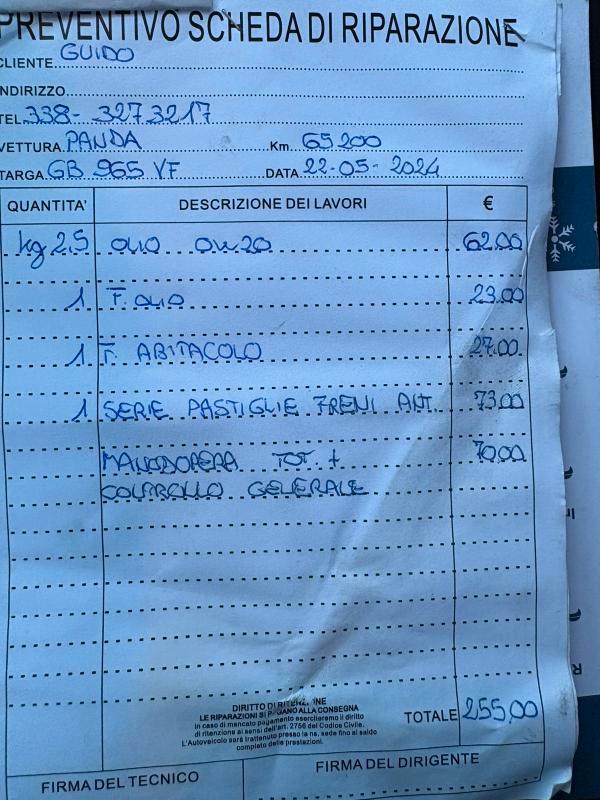 PREVENTIVO SCHEDA DI RIPARAZIONE
CLIENTE GUIDO
INDIRIZZO
TEL. 338-3273217
VETTURA PANDA Km. 65200
TARGA GB 965 VF DATA 22-05-2024
QUANTITA' DESCRIZIONE DEI LAVORI €
kg 2,5 OLIO OW20 62,00
1 F. OLIO 23,00
1 F. ABITACOLO 27,00
1 SERIE PASTIGLIE FRENI ANT. 73,00
MANODOPERA TOT. + 70,00
CONTROLLO GENERALE
DIRITTO DI RITENZIONE
LE RIPARAZIONI SI PAGANO ALLA CONSEGNA
in caso di mancato pagamento eserciteremo il diritto
di ritenzione ai sensi dell'art. 2756 del Codice Civile.
L'Autoveicolo sarà trattenuto presso la ns. sede fino al saldo
completo delle prestazioni.
TOTALE 255,00
FIRMA DEL TECNICO FIRMA DEL DIRIGENTE